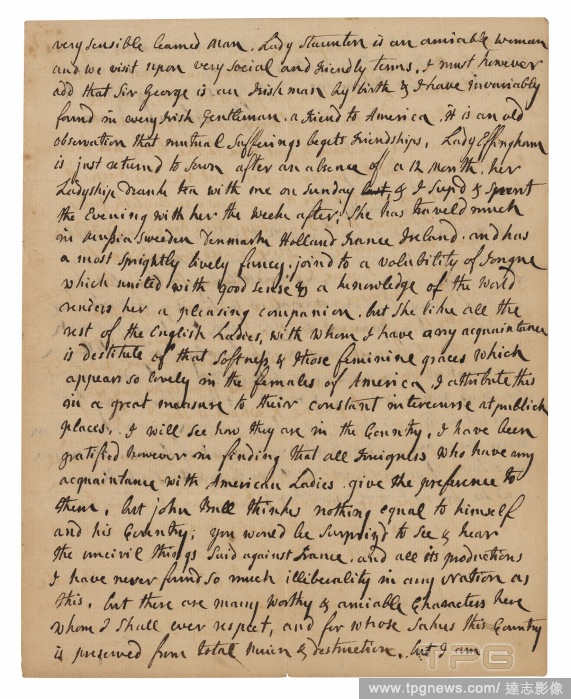 very sensible learned man. Lady Staunton is an amiable woman
and we visit upon very social and friendly terms. I must however
add that Sir George is an Irishman by birth & I have invariably
found in every Irish Gentleman, a Friend to America. it is an old
observation that mutual Sufferings begets Friendships. Lady Effingham
is just returnd to Town after an absence of a 12 Month. her
Ladyship Drank tea with me on Sunday last, & I Sup'd & spent
the Evening with her the week after. She has traveld much
in Russia Sweeden Denmark Holland France Ireland. and has
a most sprightly lively fancy. joind to a volubility of Tongue
which united with good sense & a knowledge of the World
renders her a pleasing companion, but She like all the
rest of the English Ladies, with whom I have any acquaintance
is destitute of that Softness & those feminine graces which
appear so lovely in the females of America. I attribute this
in a great measure to their constant intercourse at publick
places. I will see how they are in the Country. I have been
gratified however in finding that all Foreigners who have any
acquaintance with American Ladies give the preference to
them, but john Bull thinks nothing equal to himself
and his Country; you would be Surprizd to see & hear
the uncivil things Said against France. and all its productions
I have never found so much illiberality in any Nation as
this. but there are many worthy & amiable Characters here
whom I Shall ever respect, and for whose Sakes this Country
is preserved from total Ruin & destruction. but I am
TPG
www.tpgnews.com / 達志影像